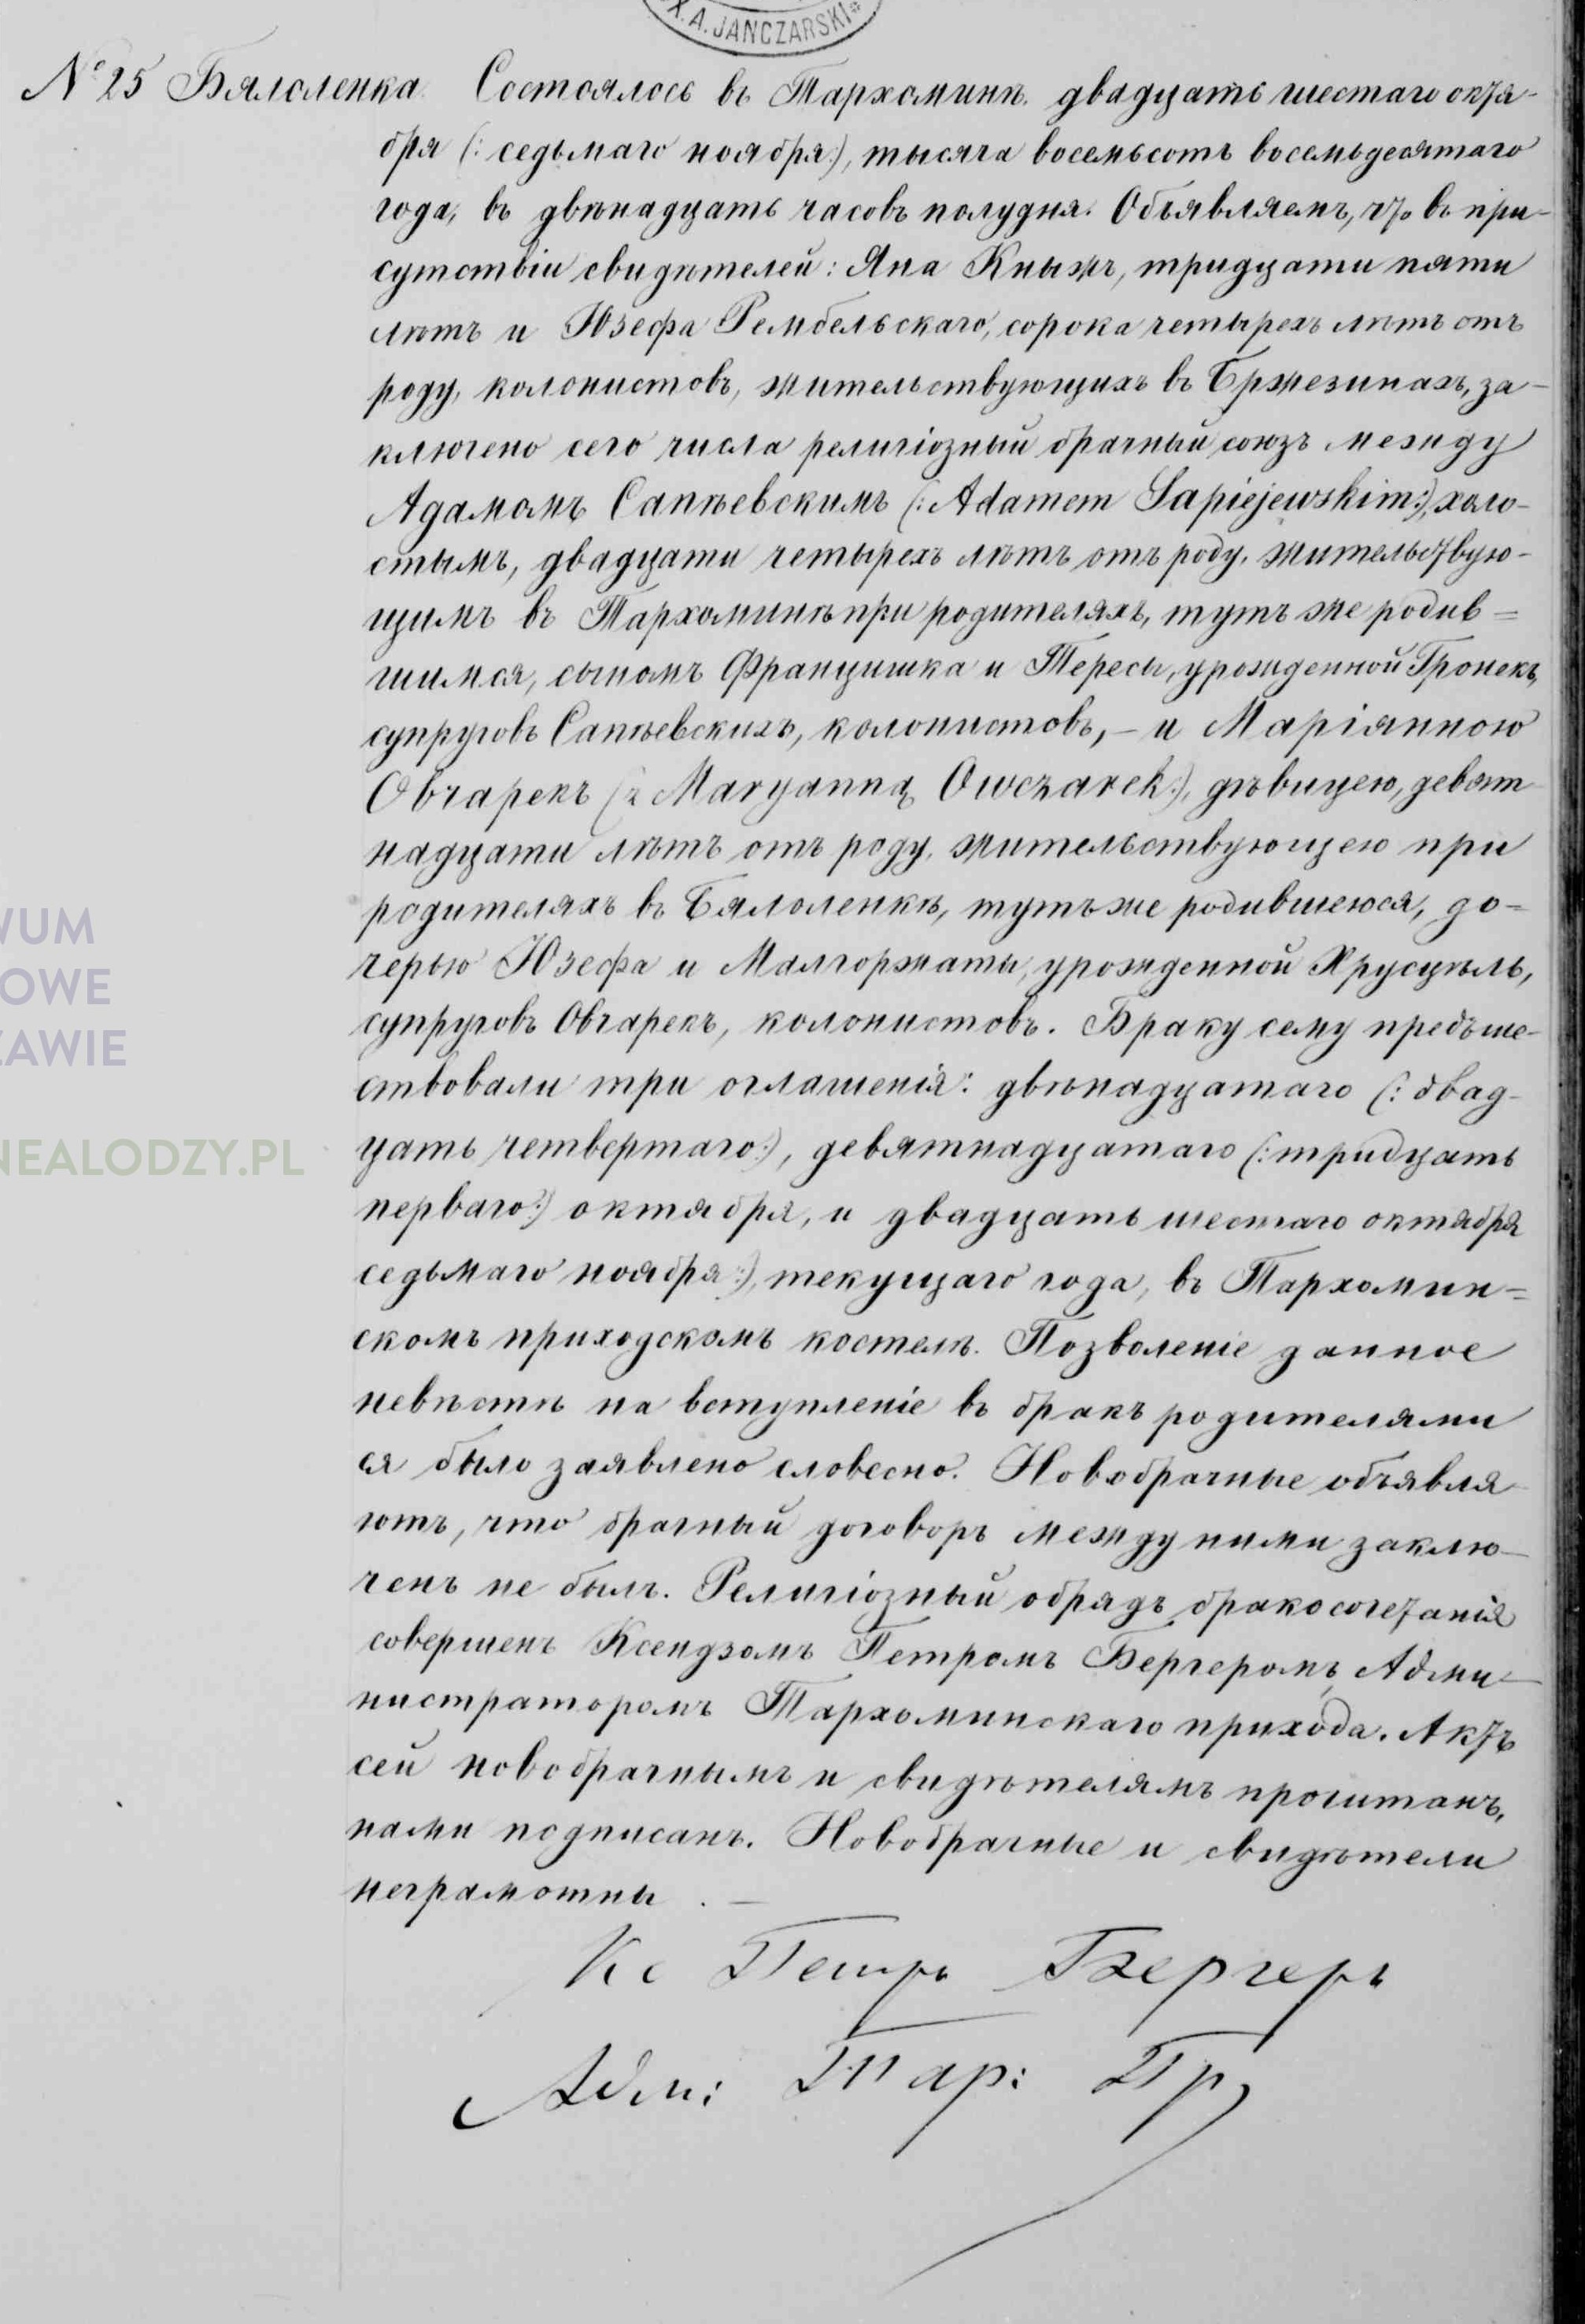 X. A. JANCZARSKI
№ 25 Бялоленка. Состоялось въ Тархоминѣ двадцать шестаго октя-
бря (: седьмаго ноября:), тысяча восемьсотъ восемьдесятаго
года, въ двѣнадцать часовъ полудня. Объявляемъ, что въ при-
сутствіи свидѣтелей: Яна Кныжъ, тридцати пяти
лѣтъ и Юзефа Рембельскаго, сорока четырехъ лѣтъ отъ
роду, колонистовъ, жительствующихъ въ Бржезинахъ, за-
ключено сего числа религіозный брачный союзъ между
Адамомъ Сапѣевскимъ (: Adamem Sapiejewskim:), холо-
стымъ, двадцати четырехъ лѣтъ отъ роду, жительствую-
щимъ въ Тархоминѣ при родителяхъ, тутъ же родив=
шимся, сыномъ Францишка и Тересы, урожденной Гронекъ,
супруговъ Сапѣевскихъ, колонистовъ, – и Маріянною
Овчарекъ (: z Maryanną Owczarek:), дѣвицею, девят-
надцати лѣтъ отъ роду, жительствующею при
родителяхъ въ Бялоленкѣ, тутъ же родившеюся, до=
черью Юзефа и Малгоржаты, урожденной Хрусцѣль,
супруговъ Овчарекъ, колонистовъ. Браку сему предъше-
ствовали три оглашенія: двѣнадцатаго (: двад-
цать четвертаго:), девятнадцатаго (: тридцать
перваго:) октября, и двадцать шестаго октября
седьмаго ноября:), текущаго года, въ Тархомин=
скомъ приходскомъ костелѣ. Позволеніе данное
невѣстѣ на вступленіе въ бракъ родителями
ея было заявлено словесно. Новобрачные объявля-
ютъ, что брачный договоръ между ними заклю-
ченъ не былъ. Религіозный обрядъ бракосочетанія
совершенъ Ксендзомъ Петромъ Бергеромъ, Адми-
нистраторомъ Тархоминскаго прихода. Актъ
сей новобрачнымъ и свидѣтелямъ прочитанъ,
нами подписанъ. Новобрачные и свидѣтели
неграмотны. –
Кс Петръ Бергеръ
Адм: Тар: Пр,
WUM
OWE
ZAWIE
NEALODZY.PL